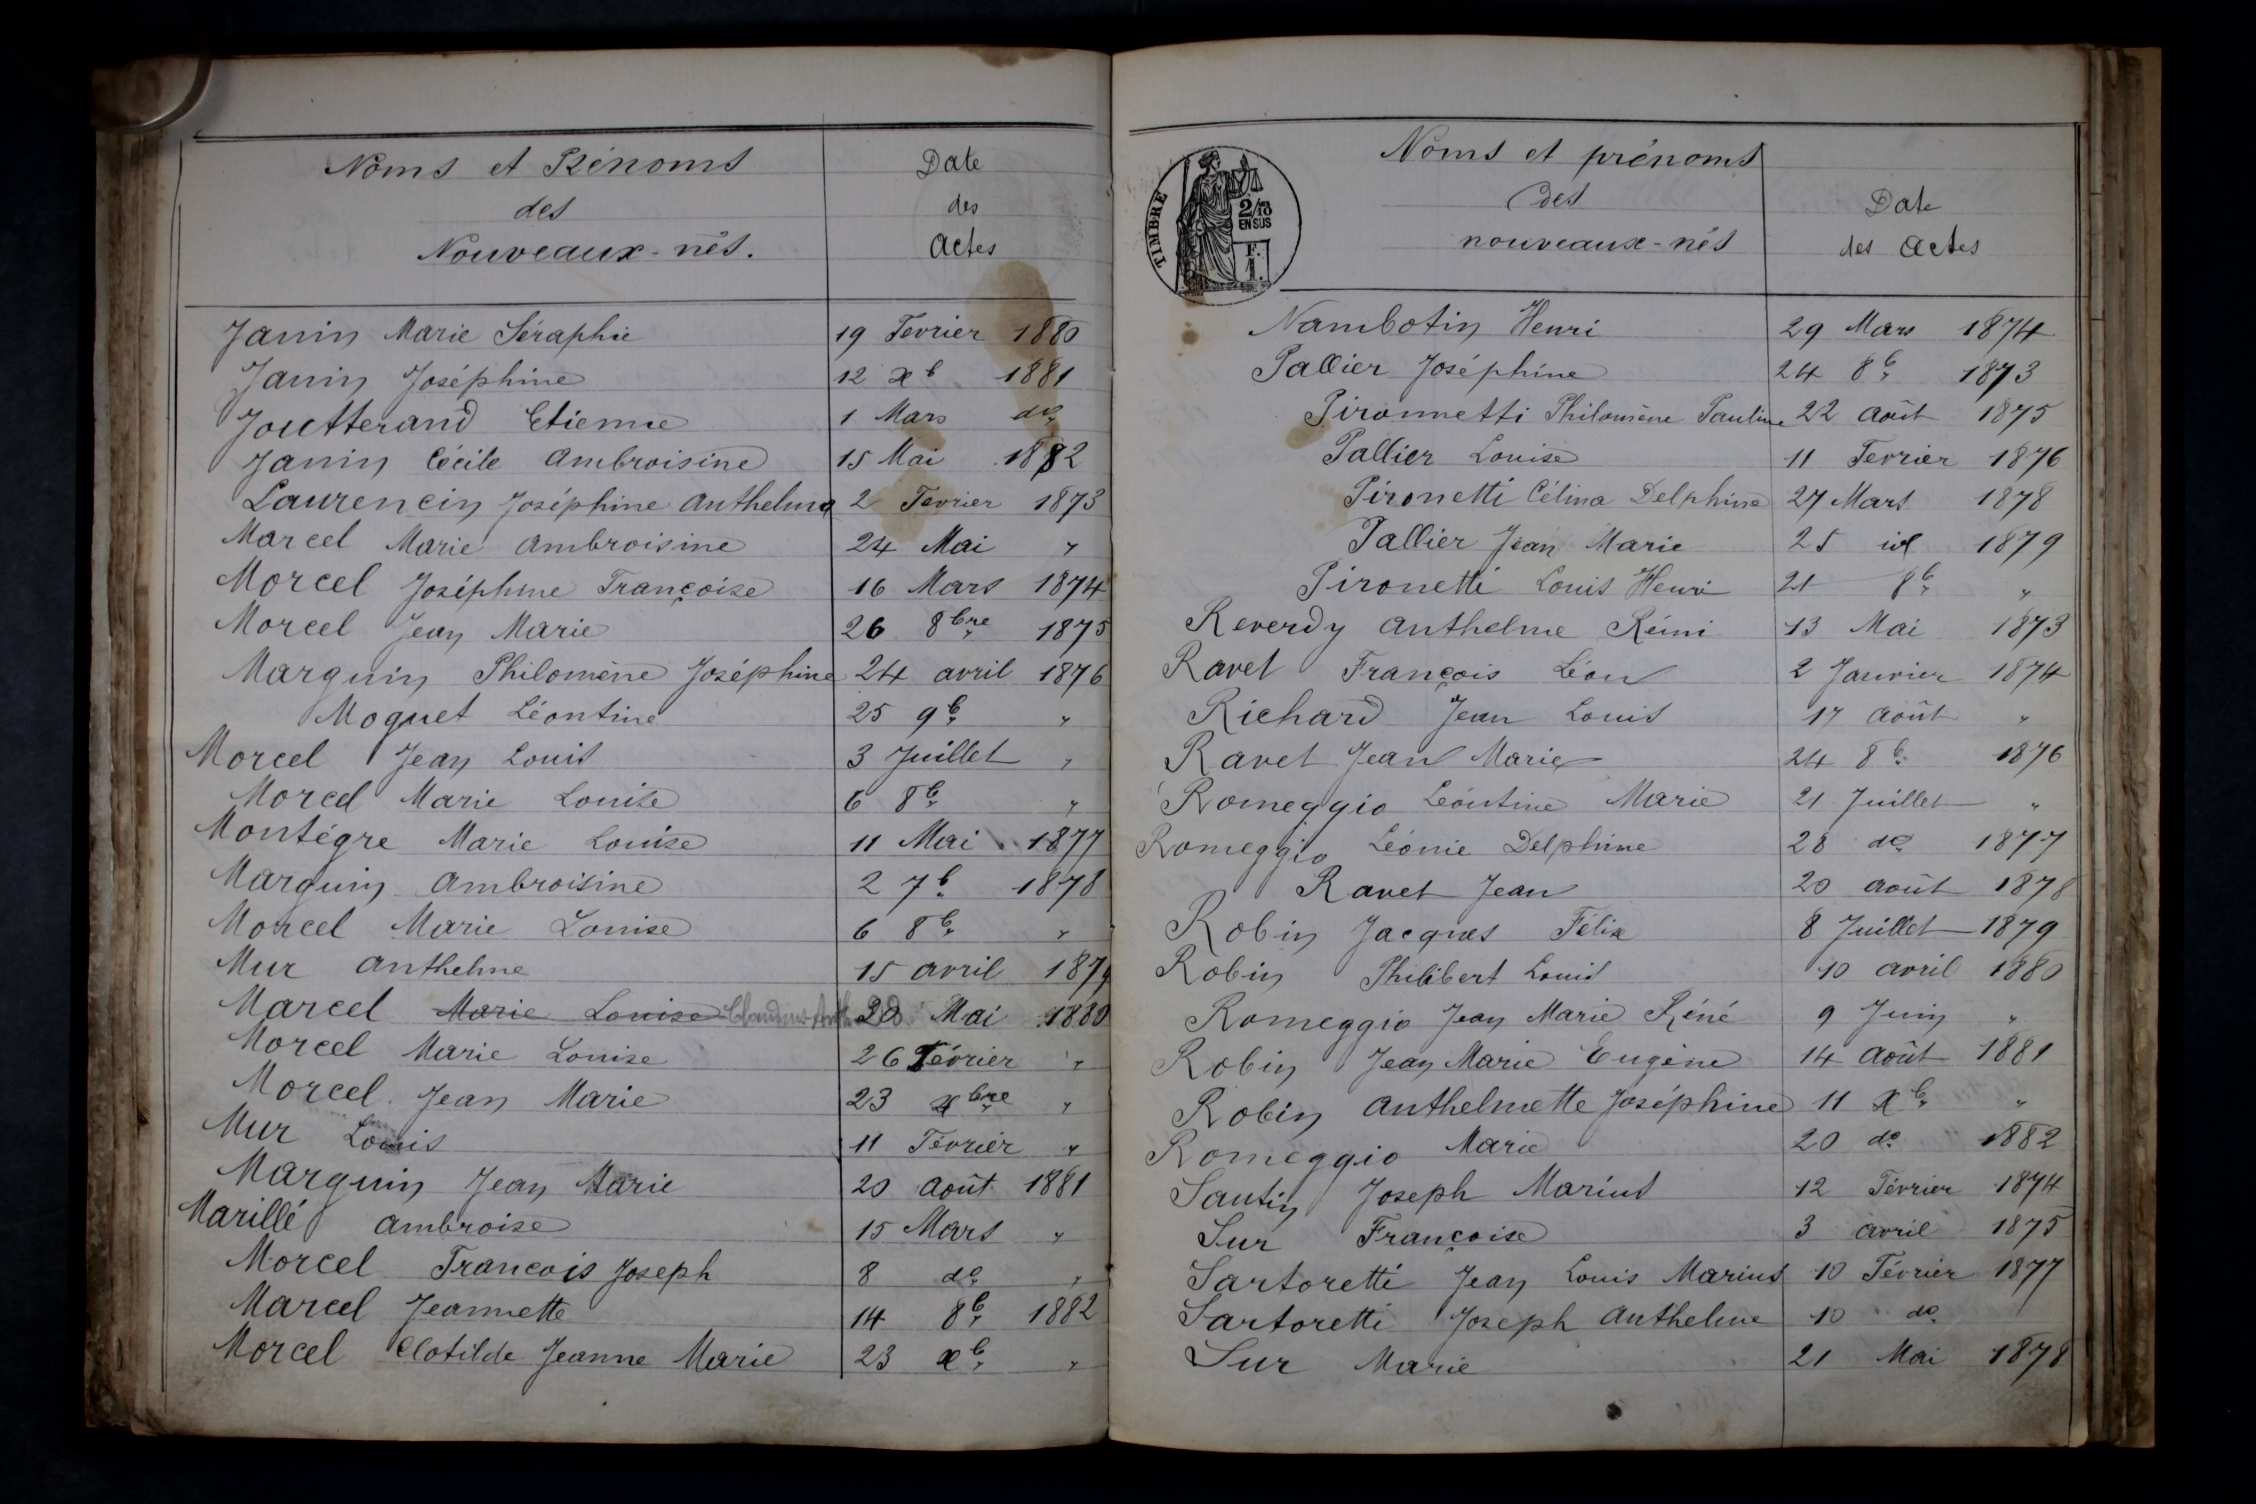 Noms et Prénoms
des
Nouveaux-nés.
Date
des
Actes
Janin Marie Séraphie 19 Fevrier 1880
Janin Joséphine 12 xb 1881
Joutterand Etienne 1 Mars do
Janin Cécile Ambroisine 15 Mai 1882
Laurencin Joséphine Anthelma 2 Février 1873
Marcel Marie Ambroisine 24 Mai "
Morcel Joséphine Françoise 16 Mars 1874
Morcel Jean Marie 26 8bre 1875
Marguin Philomène Joséphine 24 avril 1876
Moguet Léontine 25 9b "
Morcel Jean Louis 3 Juillet "
Morcel Marie Louise 6 8b "
Montégre Marie Louise 11 Mai 1877
Marguin Ambroisine 2 7b 1878
Morcel Marie Louise 6 8b "
Mur Anthelme 15 avril 1879
Marcel Marie Louise 20 Mai 1880
Morcel Marie Louise 26 Février "
Morcel Jean Marie 23 xbre "
Mur Louis 11 Février "
Marguin Jean Marie 20 Août 1881
Marillé Ambroise 15 Mars "
Morcel François Joseph 8 do "
Marcel Jeannette 14 8b 1882
Morcel Clotilde Jeanne Marie 23 xb "
TIMBRE
2/10
EN SUS
F.
1.
Noms et prénoms
des
nouveaux-nés
Date
des Actes
Nambotin Henri 29 Mars 1874
Pallier Joséphine 24 8b 1873
Pironnetti Philomène Pauline 22 Août 1875
Pallier Louise 11 Fevrier 1876
Pironetti Célina Delphine 27 Mars 1878
Pallier Jean Marie 25 id 1879
Pironetti Louis Henri 21 8b "
Reverdy Anthelme Rémi 13 Mai 1873
Ravet François Léon 2 Janvier 1874
Richard Jean Louis 17 Août "
Ravet Jean Marie 24 8b 1876
Romeggio Léontine Marie 21 Juillet "
Romeggio Léonie Delphine 28 do 1877
Ravet Jean 20 août 1878
Robin Jacques Félix 8 Juillet 1879
Robin Philibert Louis 10 avril 1880
Romeggio Jean Marie Réné 9 Juin "
Robin Jean Marie Eugène 14 Août 1881
Robin Anthelmette Joséphine 11 xb "
Romeggio Marie 20 do 1882
Santin Joseph Marius 12 Février 1874
Sur Françoise 3 avril 1875
Sartoretti Jean Louis Marius 10 Février 1877
Sartoretti Joseph Anthelme 10 do
Sur Marie 21 Mai 1878